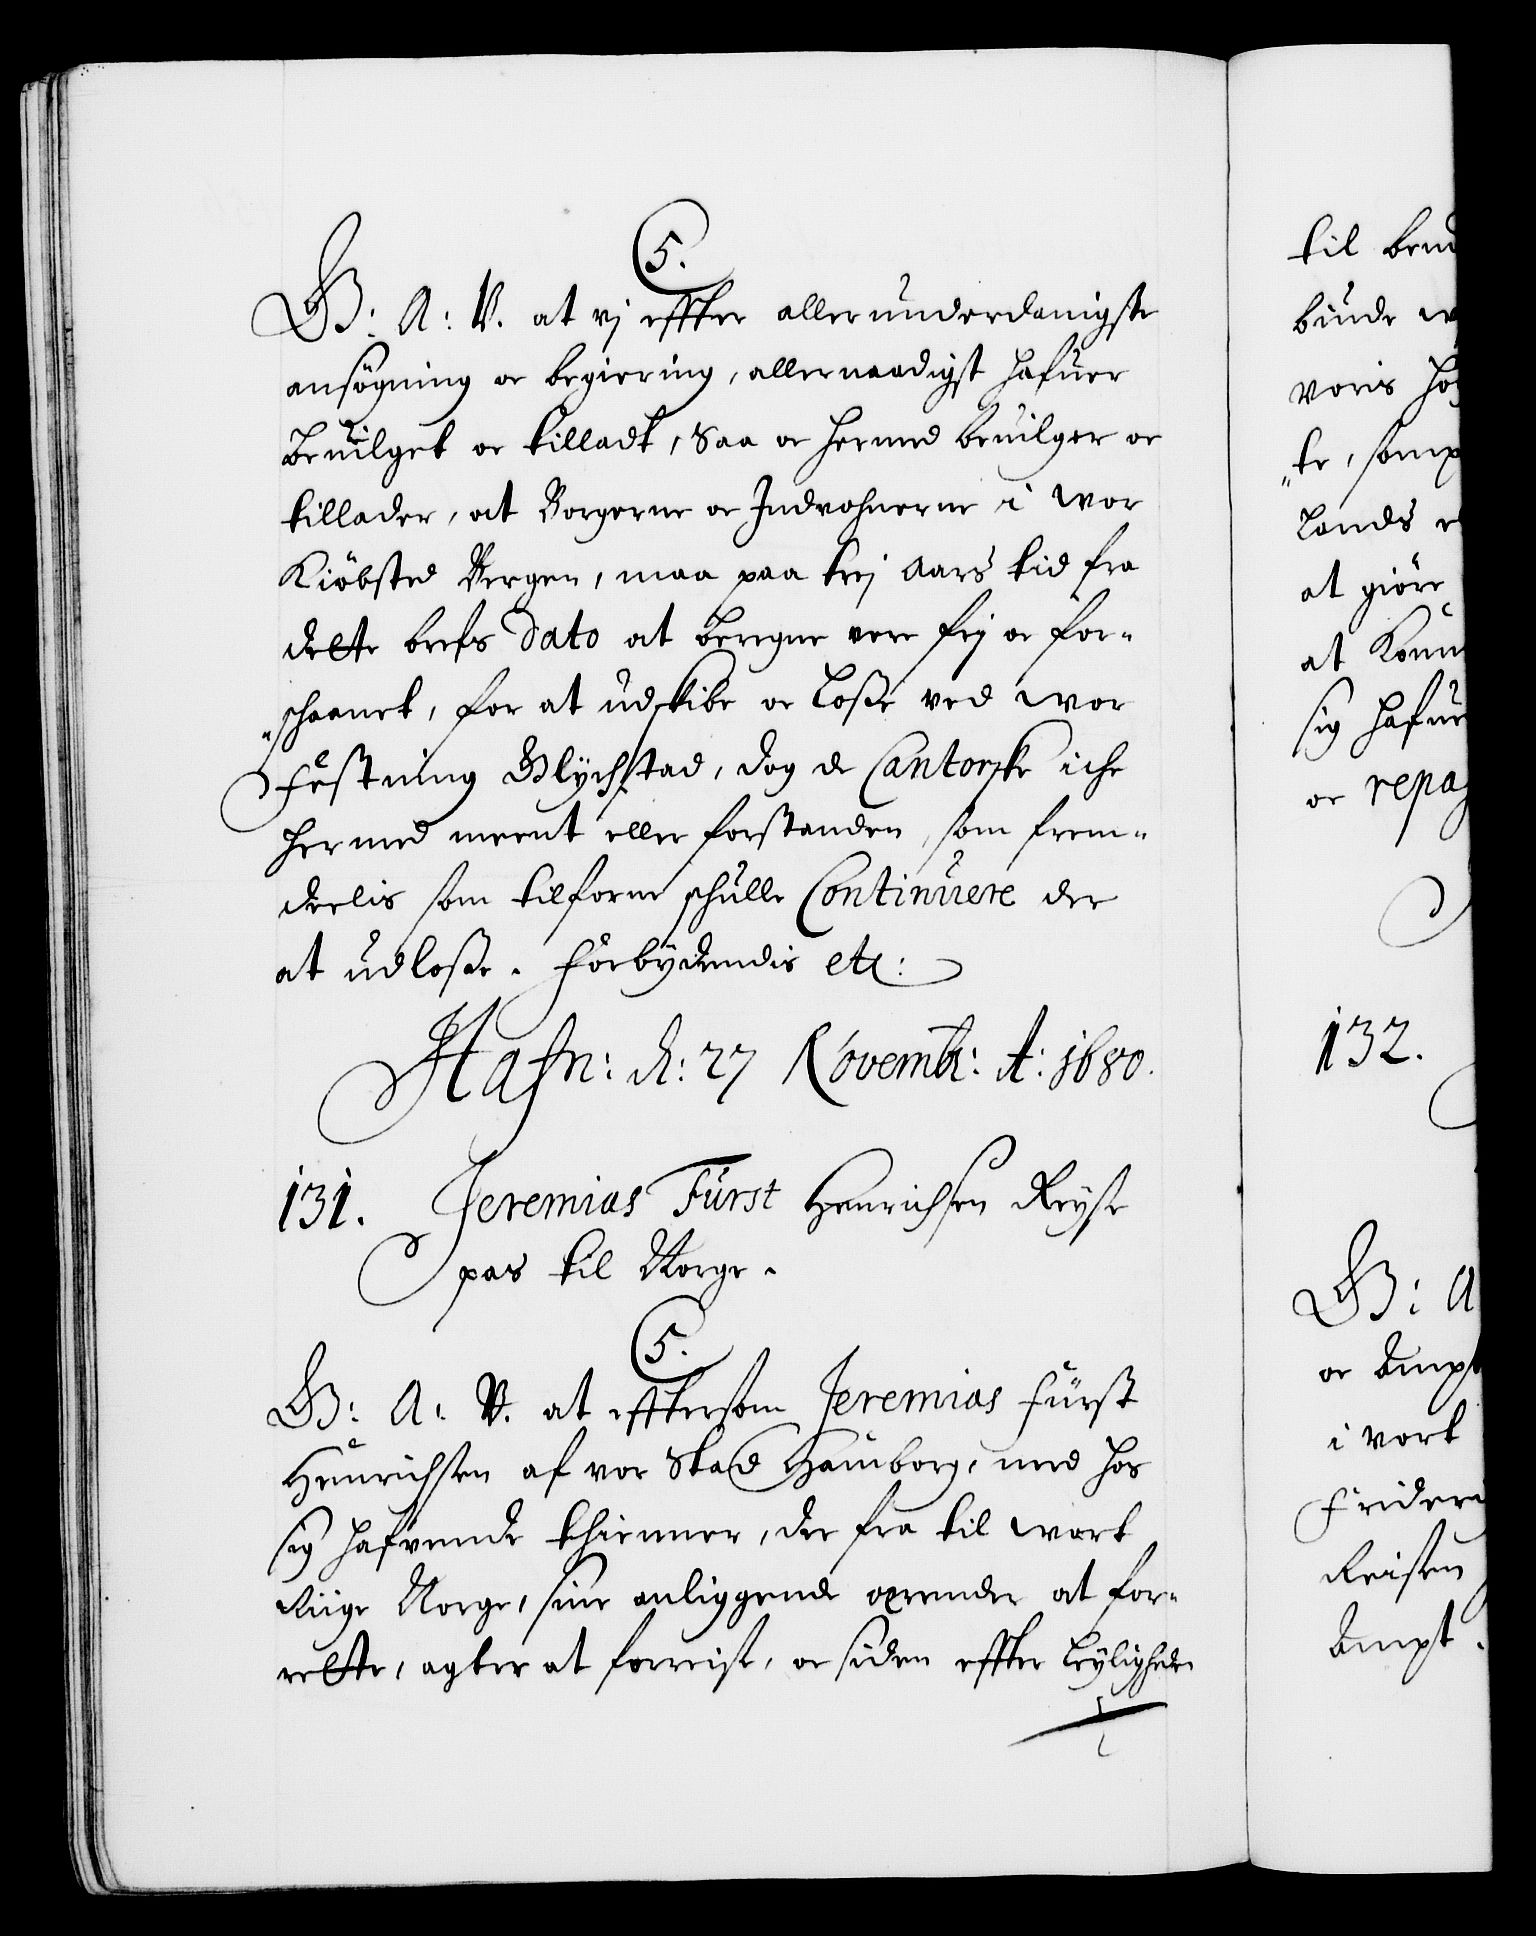 C5.
G: A: V. at vj effter allerunderdanigste
ansögning oc begiering, allernaadigst hafuer
bevilget oc tilladt, saa oc hermed bevilger oc
tillader, at Borgerne oc Indvohnerne i wor
Kiöbsted Bergen, maa paa trej Aars tid fra
dette brefs Dato at beregne vere frj oc for-
"schaanet, for at udskibe oc losse ved wor
Festning Glÿchstad, dog de Cantorske iche
hermed meent eller forstanden, som frem-
deelis som tilforne schulle Continuere der
at udlosse. Forbydendis etc:
Hafn: d: 27 Novembr: A: 1680.
131. Jeremias Fürst Henrichsen Reyse
pas til Norge.
C5.
G: A: V. at eftersom Jeremias Fürst
Henrichsen af vor Stad Hamborg, med hos
sig hafvende thienner, der fra til wort
Riige Norge, sine anliggende erender at for-
rette, agter at forreise, oc siden effter leyligheden
til
binde
voris
"te, som
Lands
at giöre
at
sig hafue
oc
132.
G: A
oc Ampt
i vort
Frideri
Reisen
Ampt.